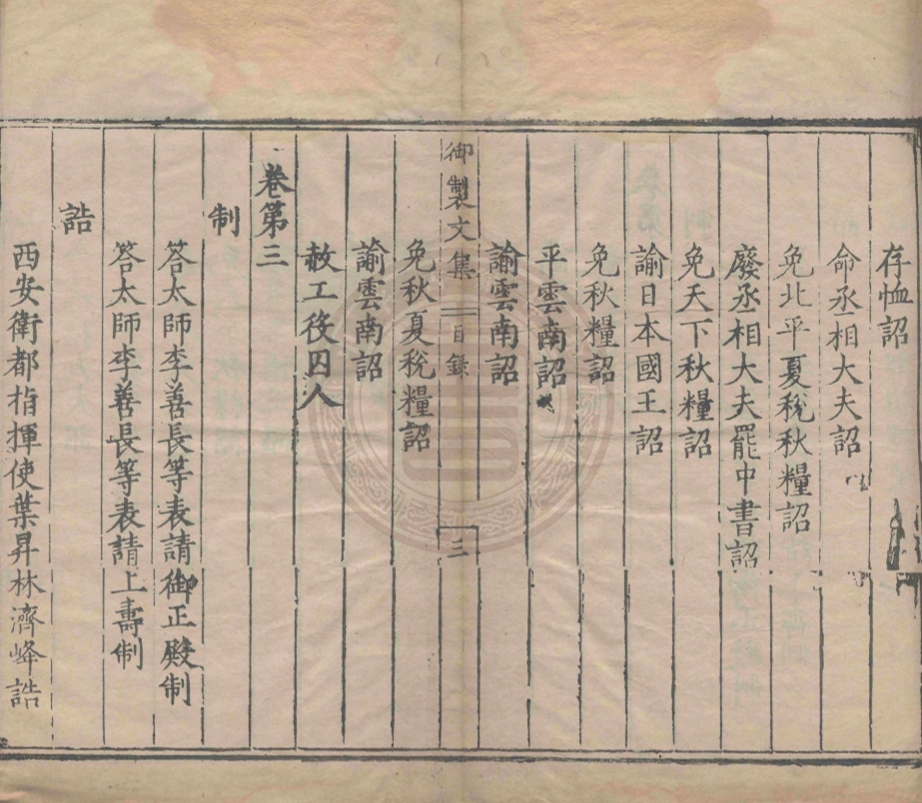 存恤詔
命丞相大夫詔
免北平夏稅秋糧詔
廢丞相大夫罷中書詔
免天下秋糧詔
諭日本國王詔
免秋糧詔
平雲南詔
諭雲南詔
御製文集 目錄 三
免秋夏稅糧詔
諭雲南詔
赦工役囚人
卷第三
制
答太師李善長等表請御正殿制
答太師李善長等表請上壽制
誥
西安衛都指揮使葉昇林濟峰誥